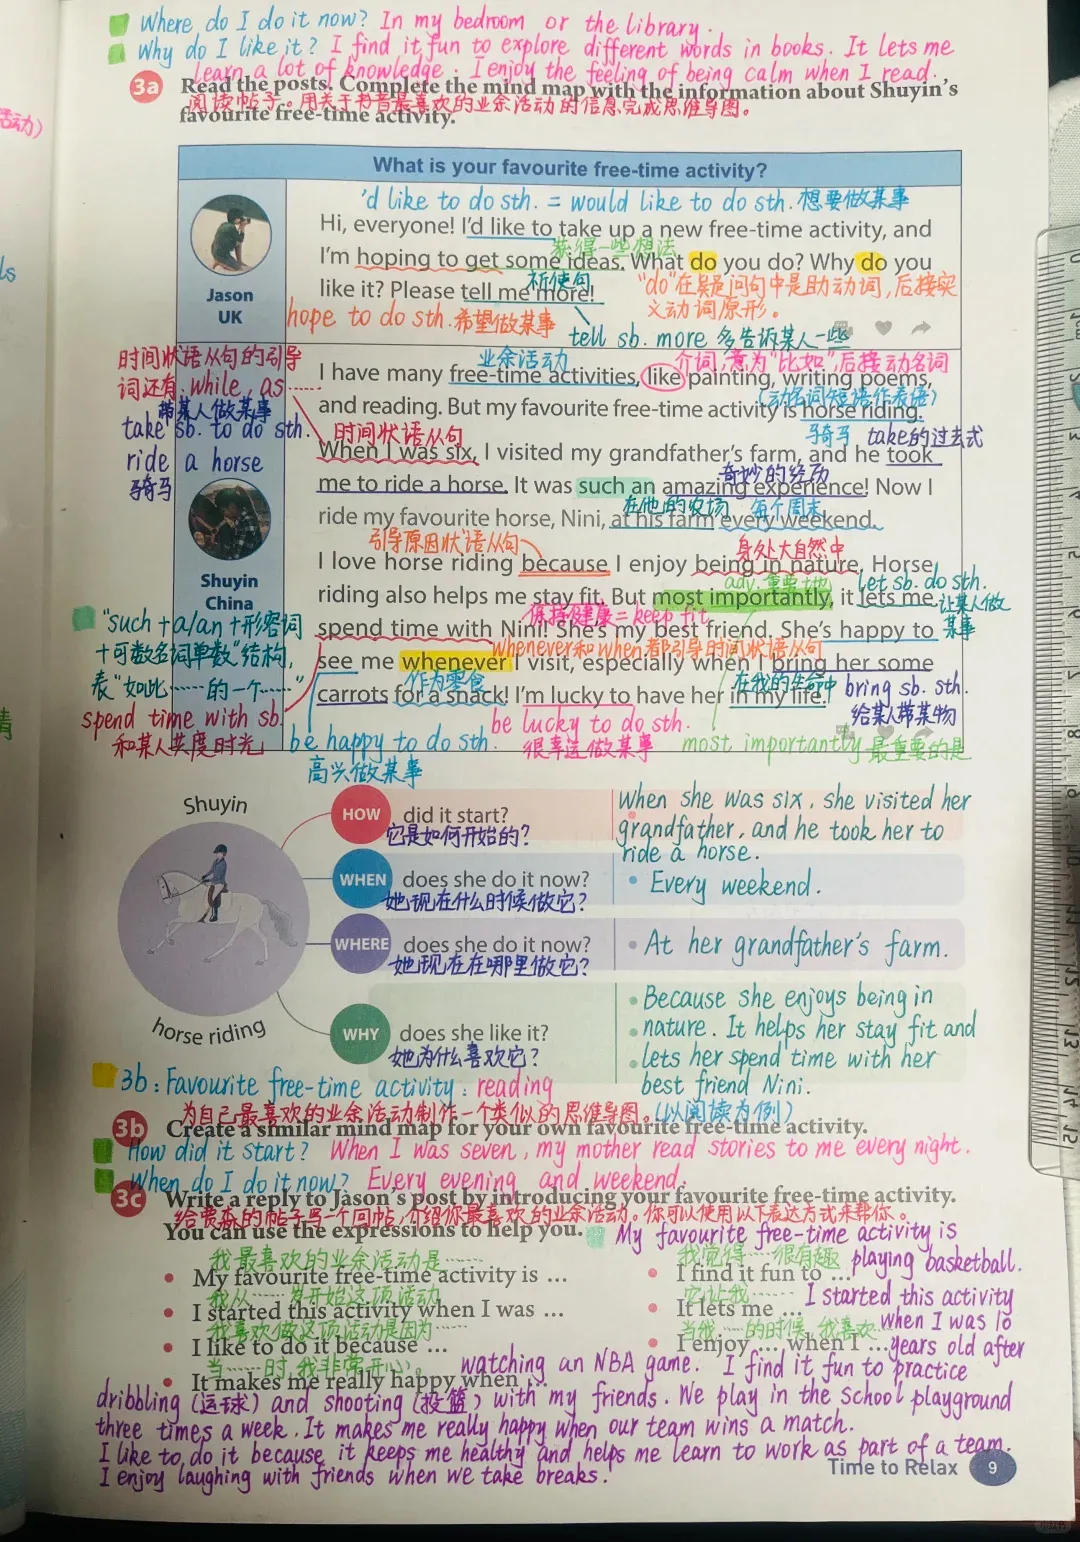 Where do I do it now? In my bedroom or the library.
Why do I like it? I find it fun to explore different words in books. It lets me
learn a lot of knowledge. I enjoy the feeling of being calm when I read.
3a Read the posts. Complete the mind map with the information about Shuyin's
阅读帖子。用关于书音最喜欢的业余活动的信息完成思维导图。
favourite free-time activity.
活动)
What is your favourite free-time activity?
'd like to do sth. = would like to do sth. 想要做某事
Hi, everyone! I'd like to take up a new free-time activity, and
获得一些想法
I'm hoping to get some ideas. What do you do? Why do you
祈使句
like it? Please tell me more!
"do"在疑问句中是助动词,后接实
义动词原形。
Jason
UK
hope to do sth. 希望做某事
tell sb. more 多告诉某人一些
时间状语从句的引导
词还有: while, as ……
业余活动
介词,意为"比如",后接动名词
I have many free-time activities, like painting, writing poems,
(动名词短语作表语)
and reading. But my favourite free-time activity is horse riding.
带某人做某事
take sb. to do sth.
时间状语从句
骑马 take的过去式
When I was six, I visited my grandfather's farm, and he took
ride a horse
骑马
奇妙的经历
me to ride a horse. It was such an amazing experience! Now I
在他的农场 每个周末
ride my favourite horse, Nini, at his farm every weekend.
引导原因状语从句
身处大自然中
I love horse riding because I enjoy being in nature. Horse
Shuyin
China
adv. 重要地
let sb. do sth.
让某人做
某事
riding also helps me stay fit. But most importantly, it lets me
保持健康 = keep fit
spend time with Nini! She's my best friend. She's happy to
whenever和when都引导时间状语从句
see me whenever I visit, especially when I bring her some
作为零食
在我的生命中
carrots for a snack! I'm lucky to have her in my life.
"such + a/an + 形容词
+可数名词单数"结构,
表"如此……的一个……"
spend time with sb.
和某人共度时光
be happy to do sth.
高兴做某事
be lucky to do sth.
很幸运做某事
bring sb. sth.
给某人带某物
most importantly 最重要的是
Shuyin
horse riding
HOW did it start?
它是如何开始的?
When she was six, she visited her
grandfather, and he took her to
ride a horse.
WHEN does she do it now?
她现在什么时候做它?
Every weekend.
WHERE does she do it now?
她现在在哪里做它?
At her grandfather's farm.
WHY does she like it?
她为什么喜欢它?
Because she enjoys being in
nature. It helps her stay fit and
lets her spend time with her
best friend Nini.
3b: Favourite free-time activity: reading
为自己最喜欢的业余活动制作一个类似的思维导图。(以阅读为例)
3b Create a similar mind map for your own favourite free-time activity.
How did it start? When I was seven, my mother read stories to me every night.
When do I do it now? Every evening and weekend.
3c Write a reply to Jason's post by introducing your favourite free-time activity.
给杰森的帖子写一个回帖,介绍你最喜欢的业余活动。你可以使用以下表达方式来帮你。
You can use the expressions to help you.
My favourite free-time activity is
我最喜欢的业余活动是……
• My favourite free-time activity is ...
我觉得……很有趣
• I find it fun to ...
playing basketball.
我从……岁开始这项活动
• I started this activity when I was ...
它让我……
• It lets me ...
I started this activity
我喜欢做这项活动是因为……
• I like to do it because ...
当我……的时候,我喜欢
• I enjoy ... when I ...
when I was 10
years old after
当……时,我非常开心。
• It makes me really happy when ...
watching an NBA game. I find it fun to practice
dribbling (运球) and shooting (投篮) with my friends. We play in the school playground
three times a week. It makes me really happy when our team wins a match.
I like to do it because it keeps me healthy and helps me learn to work as part of a team.
I enjoy laughing with friends when we take breaks!
Time to Relax 9